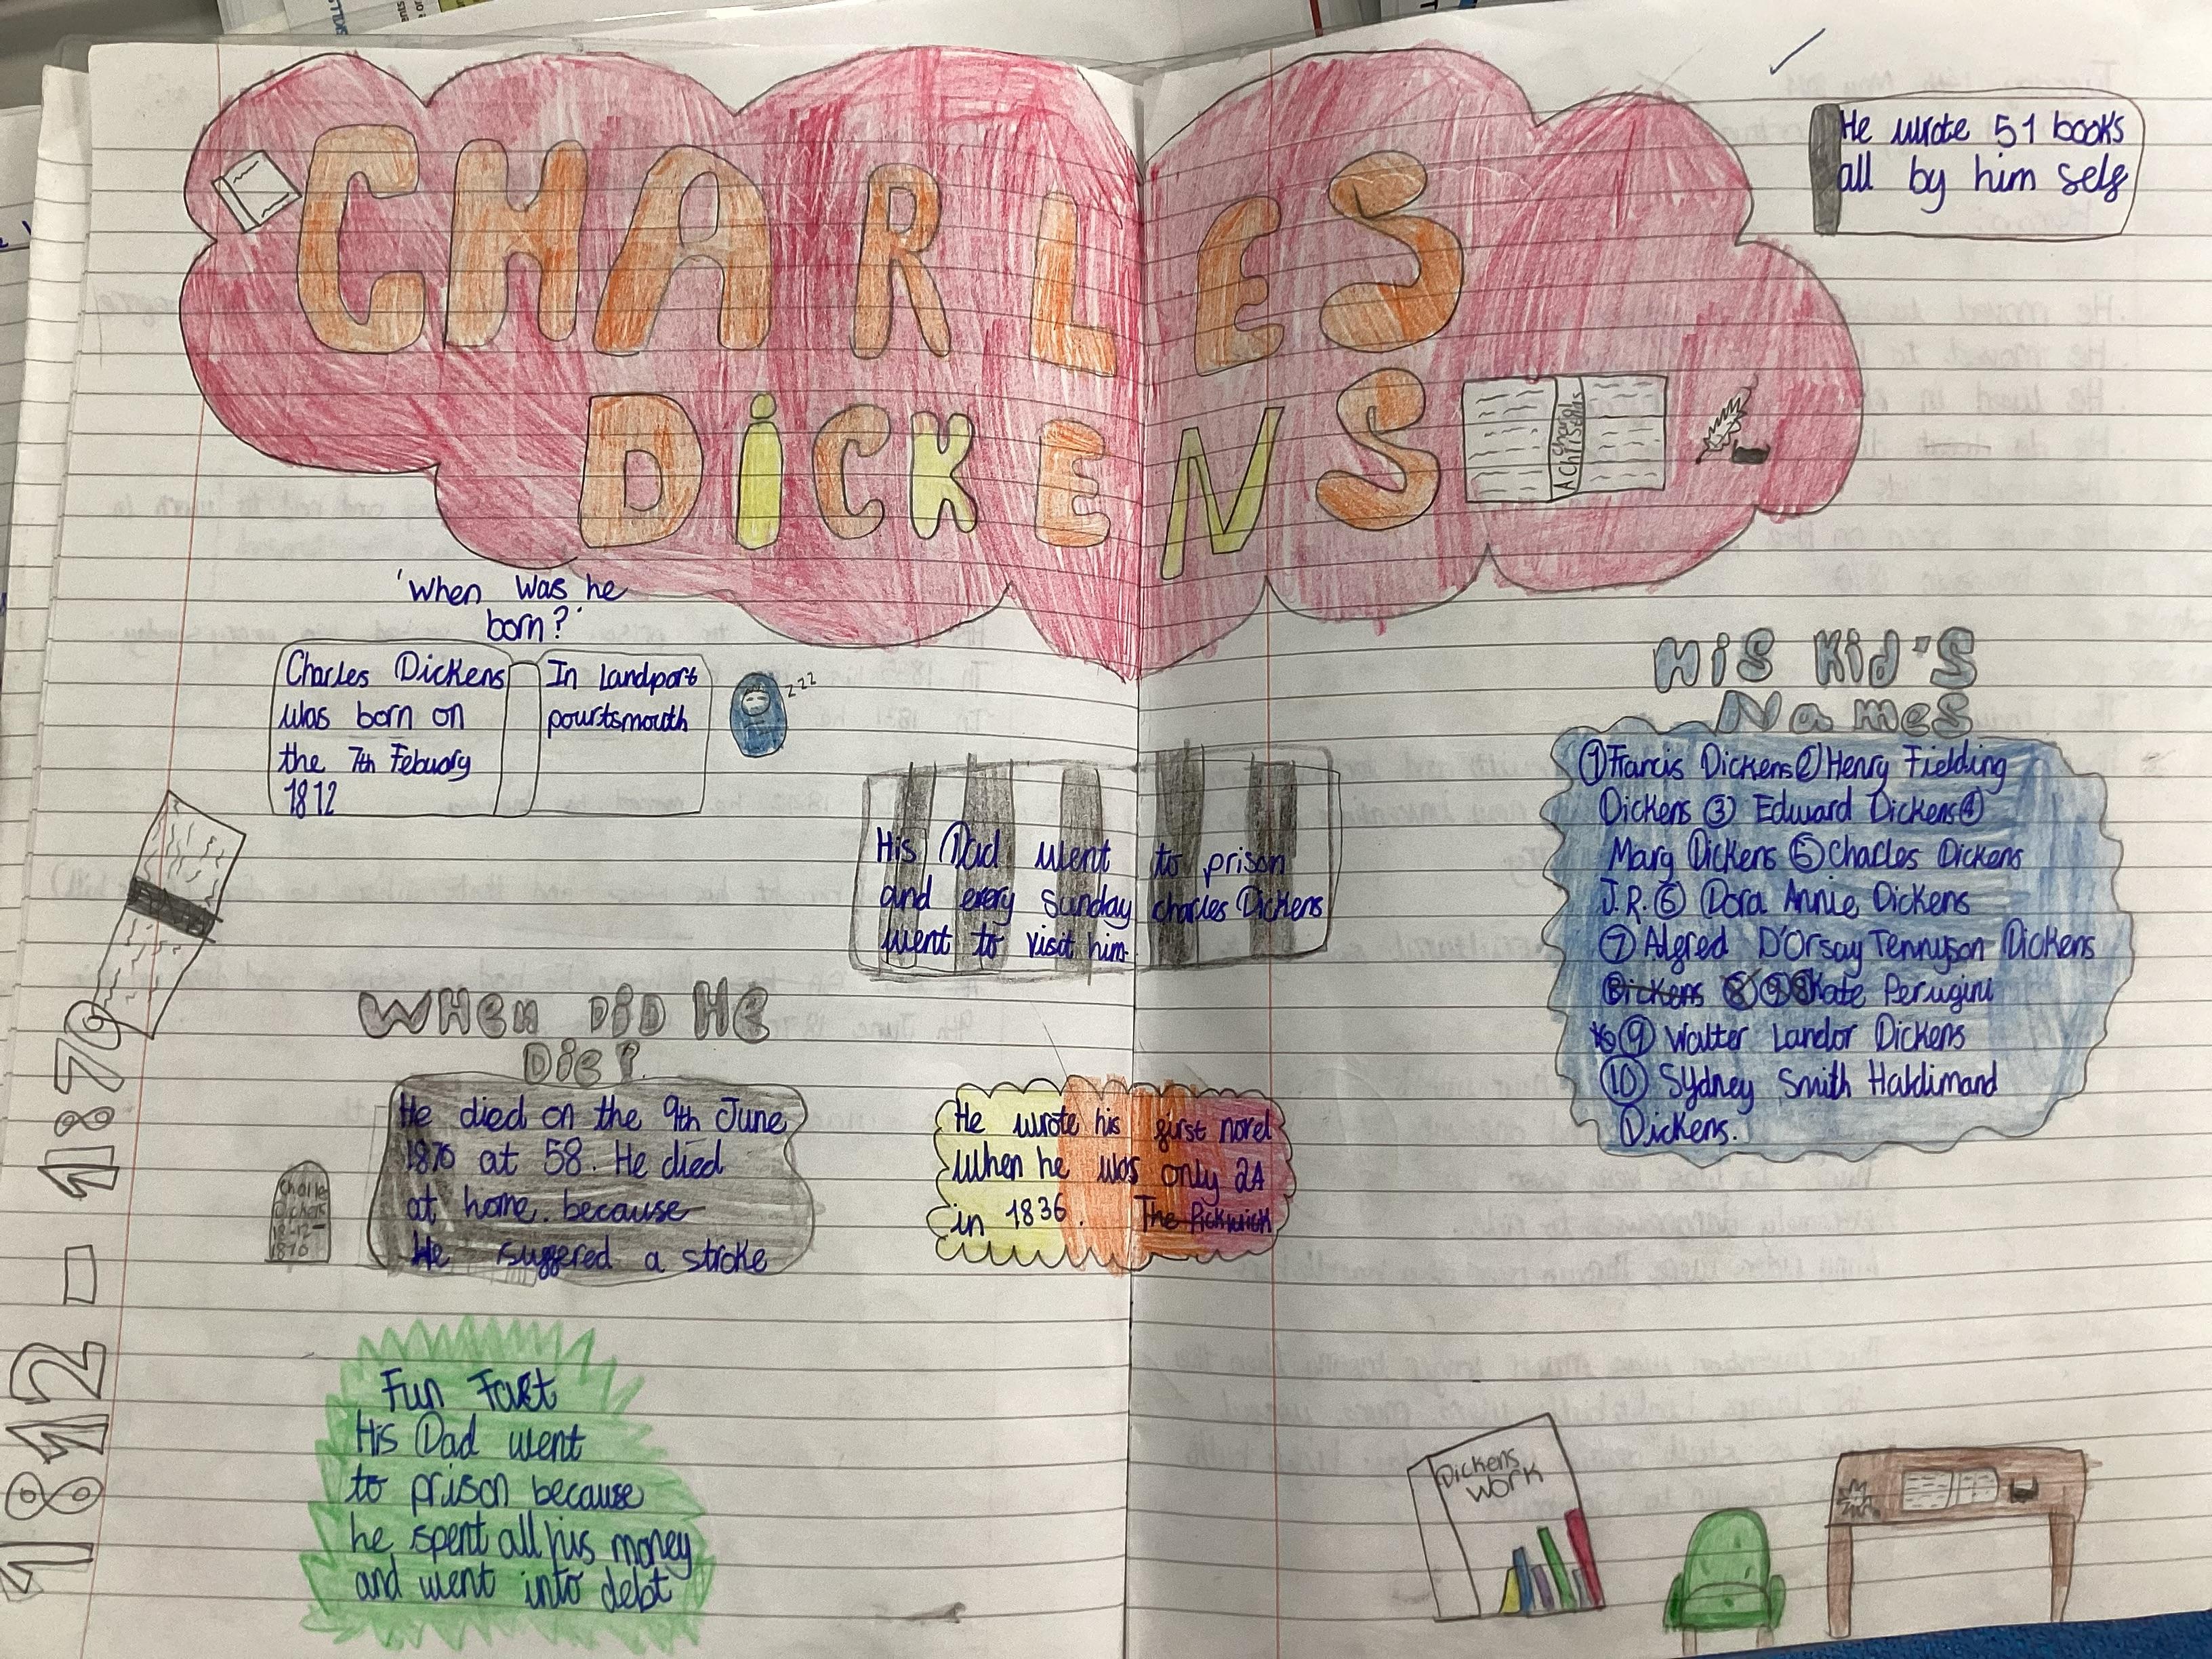 CHARLES
DiCKENS
A Christmas
He wrote 51 books
all by him self
'When was he
born?'
Charles Dickens
was born on
the 7th Febuary
1812
In Landport
pourtsmouth
zzz
His Dad went to prison
and every Sunday charles Dickens
went to visit him.
HiS Kid'S
NameS
① Francis Dickens ② Henry Fielding
Dickens ③ Edward Dickens ④
Mary Dickens ⑤ Charles Dickens
J.R. ⑥ Dora Annie Dickens
⑦ Alfred D'Orsay Tennyson Dickens
Dickens 8 Kate Perugini
⑨ Walter Landor Dickens
⑩ Sydney Smith Haldimand
Dickens.
WHen DiD HE
Die?
He died on the 9th June
1870 at 58. He died
at home. because
He suffered a stroke
Charle
Dickens
1812-
1870
He wrote his first novel
when he was only 24
in 1836. The Pickwick
1812 - 1870
Fun Fact
His Dad went
to prison because
he spent all his money
and went into debt
Dickens
Work